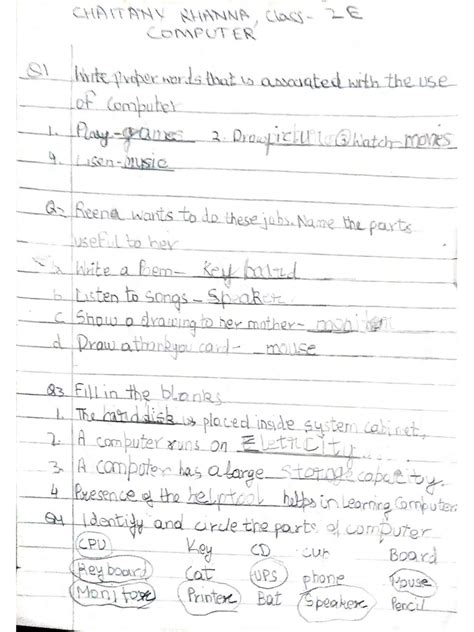 CHAITANY KHANNA, Class- 2E
COMPUTER
Q1 Write proper words that is associated with the use
of computer
1. Play-games 2. Draw picture ③ Watch-movies
4. Lisen-music
Q2 Reena wants to do these jobs. Name the parts
useful to her
a. Write a Poem- Key
b. Listen to songs - Speaker
c Show a drawing to her mother- moniter
d Draw a thankyou card- mouse
Q3 Fill in the blanks
1. The harddisk is placed inside system cabinet.
2. A computer runs on
3. A computer has a large storage capacity.
4 Presence of the helptool helps in learning Computer.
Q4 Identify and circle the parts of computer
CPU Key CD cup Board
Keyboard Cat UPS phone Mouse
Monitor Printer Bat Speaker Pencil